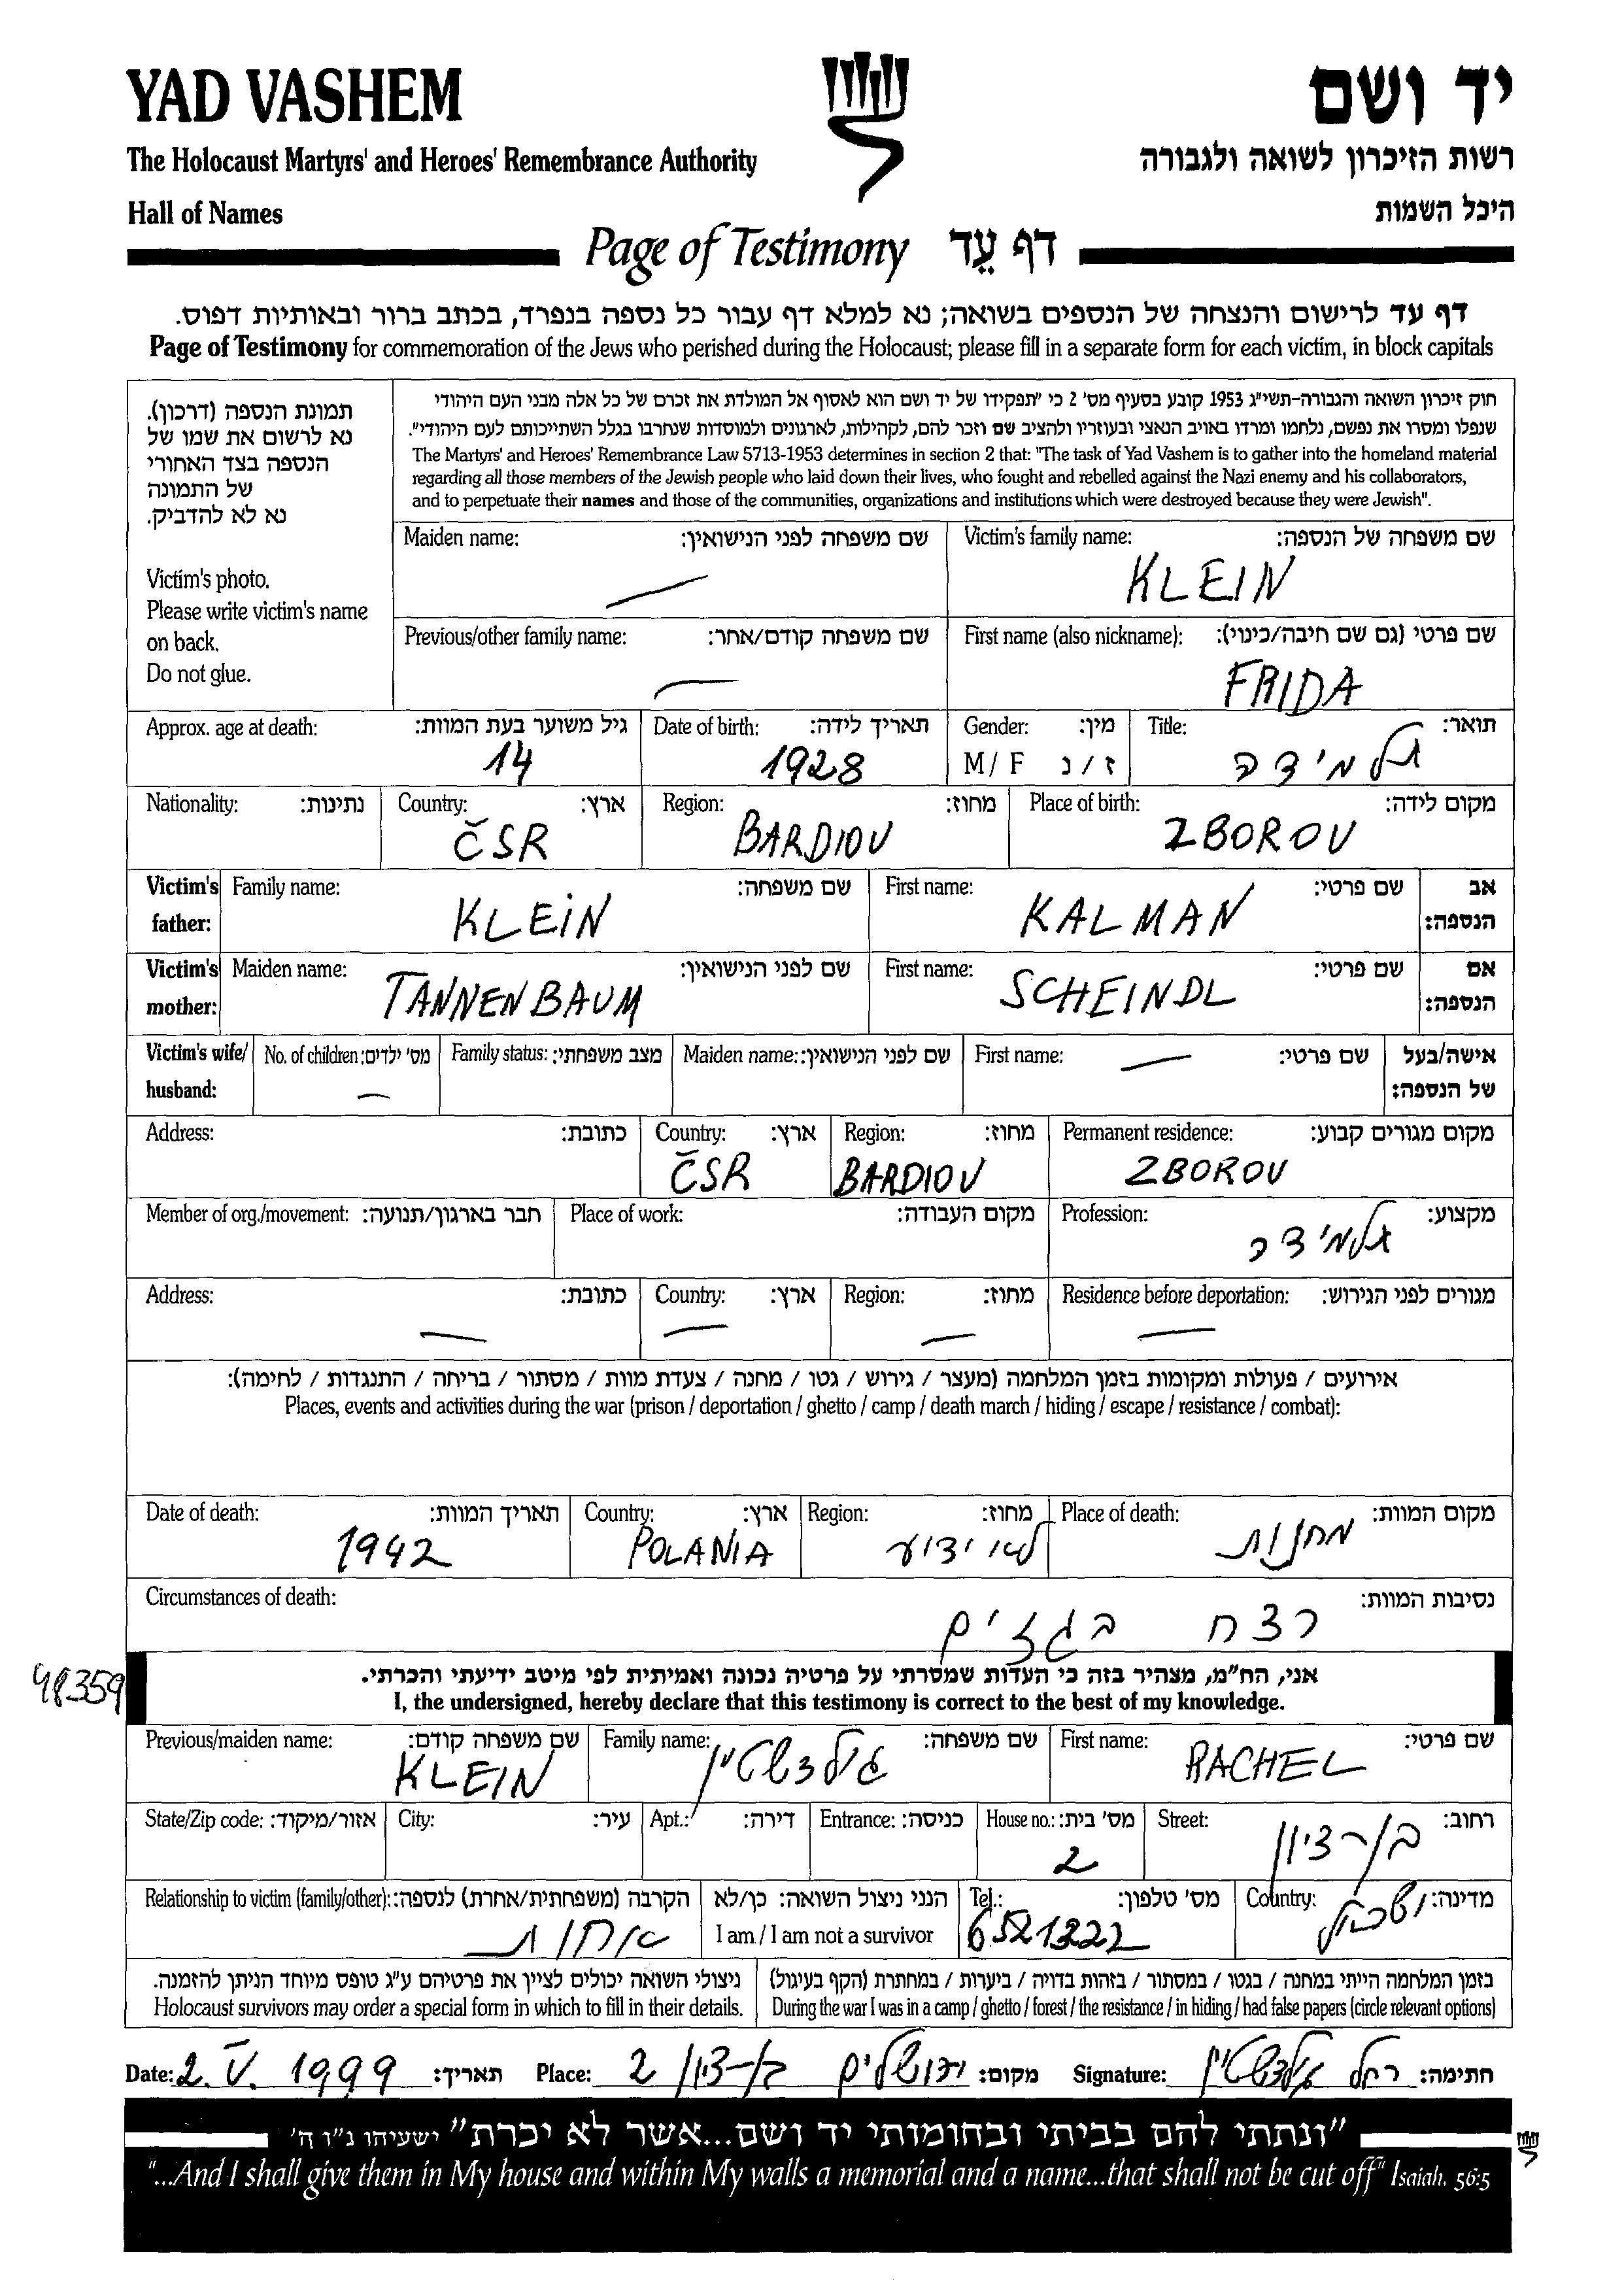 YAD VASHEM
יד ושם
The Holocaust Martyrs' and Heroes' Remembrance Authority
רשות הזיכרון לשואה ולגבורה
Hall of Names
היכל השמות
Page of Testimony דף עֵד
דף עד לרישום והנצחה של הנספים בשואה; נא למלא דף עבור כל נספה בנפרד, בכתב ברור ובאותיות דפוס.
Page of Testimony for commemoration of the Jews who perished during the Holocaust; please fill in a separate form for each victim, in block capitals
תמונת הנספה (דרכון).
נא לרשום את שמו של
הנספה בצד האחורי
של התמונה
נא לא להדביק.
Victim's photo.
Please write victim's name
on back.
Do not glue.
חוק זיכרון השואה והגבורה-תשי"ג 1953 קובע בסעיף מס' 2 כי "תפקידו של יד ושם הוא לאסוף אל המולדת את זכרם של כל אלה מבני העם היהודי
שנפלו ומסרו את נפשם, נלחמו ומרדו באויב הנאצי ובעוזריו ולהציב שם וזכר להם, לקהילות, לארגונים ולמוסדות שנחרבו בגלל השתייכותם לעם היהודי".
The Martyrs' and Heroes' Remembrance Law 5713-1953 determines in section 2 that: "The task of Yad Vashem is to gather into the homeland material
regarding all those members of the Jewish people who laid down their lives, who fought and rebelled against the Nazi enemy and his collaborators,
and to perpetuate their names and those of the communities, organizations and institutions which were destroyed because they were Jewish".
Maiden name: שם משפחה לפני הנישואין: Victim's family name: שם משפחה של הנספה:
— KLEIN
Previous/other family name: שם משפחה קודם/אחר: First name (also nickname): שם פרטי (גם שם חיבה/כינוי):
— FRIDA
Approx. age at death: גיל משוער בעת המוות: Date of birth: תאריך לידה: Gender: מין: Title: תואר:
14 1928 M / F ז / נ תלמידה
Nationality: נתינות: Country: ארץ: Region: מחוז: Place of birth: מקום לידה:
ČSR BARDIOV ZBOROV
Victim's father: Family name: שם משפחה: First name: שם פרטי: אב הנספה:
KLEIN KALMAN
Victim's mother: Maiden name: שם לפני הנישואין: First name: שם פרטי: אם הנספה:
TANNENBAUM SCHEINDL
Victim's wife/ husband: No. of children: מס' ילדים: Family status: מצב משפחתי: Maiden name: שם לפני הנישואין: First name: שם פרטי: אישה/בעל של הנספה:
— —
Address: כתובת: Country: ארץ: Region: מחוז: Permanent residence: מקום מגורים קבוע:
ČSR BARDIOV ZBOROV
Member of org./movement: חבר בארגון/תנועה: Place of work: מקום העבודה: Profession: מקצוע:
תלמידה
Address: כתובת: Country: ארץ: Region: מחוז: Residence before deportation: מגורים לפני הגירוש:
— — — —
אירועים / פעולות ומקומות בזמן המלחמה (מעצר / גירוש / גטו / מחנה / צעדת מוות / מסתור / בריחה / התנגדות / לחימה):
Places, events and activities during the war (prison / deportation / ghetto / camp / death march / hiding / escape / resistance / combat):
Date of death: תאריך המוות: Country: ארץ: Region: מחוז: Place of death: מקום המוות:
1942 POLANIA לא ידוע מחנות
Circumstances of death: נסיבות המוות:
רצח בגזים
98359
אני, הח"מ, מצהיר בזה כי העדות שמסרתי על פרטיה נכונה ואמיתית לפי מיטב ידיעתי והכרתי.
I, the undersigned, hereby declare that this testimony is correct to the best of my knowledge.
Previous/maiden name: שם משפחה קודם: Family name: שם משפחה: First name: שם פרטי:
KLEIN RACHEL
State/Zip code: אזור/מיקוד: City: עיר: Apt.: דירה: Entrance: כניסה: House no.: מס' בית: Street: רחוב:
2 בן-ציון
Relationship to victim (family/other): הקרבה (משפחתית/אחרת) לנספה: הנני ניצול השואה: כן/לא Tel.: מס' טלפון: Country: מדינה:
אחות I am / I am not a survivor 6521322 ישראל
ניצולי השואה יכולים לציין את פרטיהם ע"ג טופס מיוחד הניתן להזמנה. בזמן המלחמה הייתי במחנה / בגטו / במסתור / בזהות בדויה / ביערות / במחתרת (הקף בעיגול)
Holocaust survivors may order a special form in which to fill in their details. During the war I was in a camp / ghetto / forest / the resistance / in hiding / had false papers (circle relevant options)
Date: 2. V. 1999 תאריך: Place: ירושלים בן-ציון 2 מקום: Signature: רחל חתימה:
"ונתתי להם בביתי ובחומותי יד ושם...אשר לא יכרת" ישעיהו נ"ו ה'
"...And I shall give them in My house and within My walls a memorial and a name...that shall not be cut off" Isaiah. 56:5